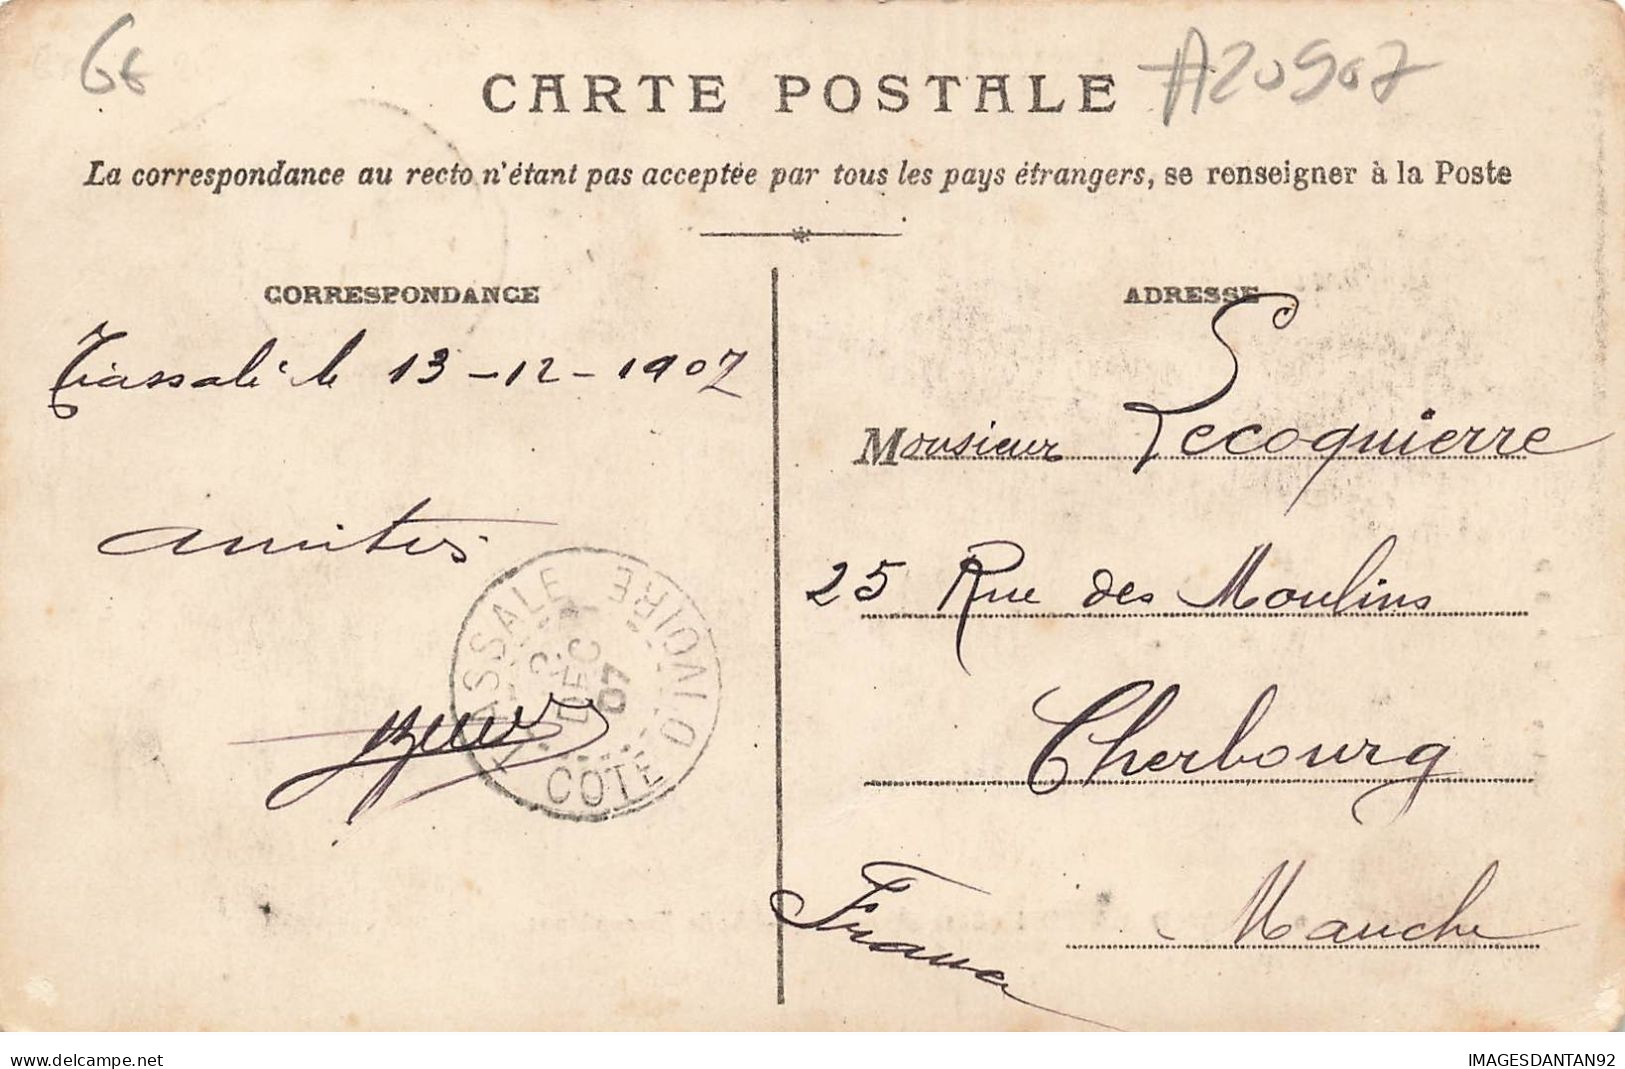 6€
A20907
CARTE POSTALE
La correspondance au recto n'étant pas acceptée par tous les pays étrangers, se renseigner à la Poste
CORRESPONDANCE
Tiassalé le 13-12-1907
amitiés
TIASSALE
DEC
07
COTE D'IVOIRE
ADRESSE
Monsieur Lecoquierre
25 Rue des Moulins
Cherbourg
Manche
France
www.delcampe.net
IMAGESDANTAN92